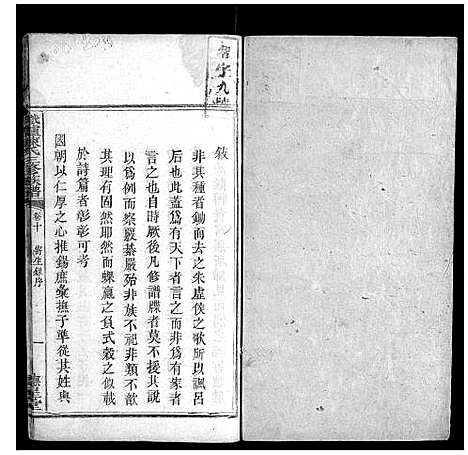 敍
非其種者鋤而去之朱虛侯之歌所以諷呂
后也此蓋爲有天下者言之而非爲有家者
言之也自時厥後凡修譜牒者莫不援其說
以例而察嚴綦嚴殆非族不祀非類不歆
其理有固然耶然而螺蠃之負式穀之似載
於詩篇者彰彰可考
國朝以仁厚之心推錫庶彙撫子準從其姓與
氏三修族譜
卷十
序
一